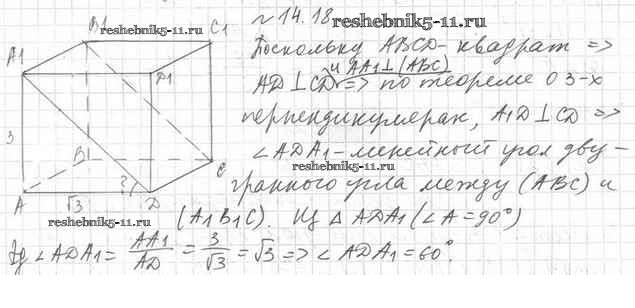 № 14.18
reshebnik5-11.ru
B1
reshebnik5-11.ru
C1
A1
D1
Поскольку ABCD - квадрат =>
и AA1 ⊥ (ABC)
AD ⊥ CD => по теореме о 3-х
перпендикулярах, A1D ⊥ CD =>
3
B
reshebnik5-11.ru
C
∠ADA1 - линейный угол дву-
гранного угла между (ABC) и
?
A
√3
D
reshebnik5-11.ru
(A1B1C). Из △ ADA1 (∠A = 90°)
tg ∠ADA1 = AA1/AD = 3/√3 = √3 => ∠ADA1 = 60°.